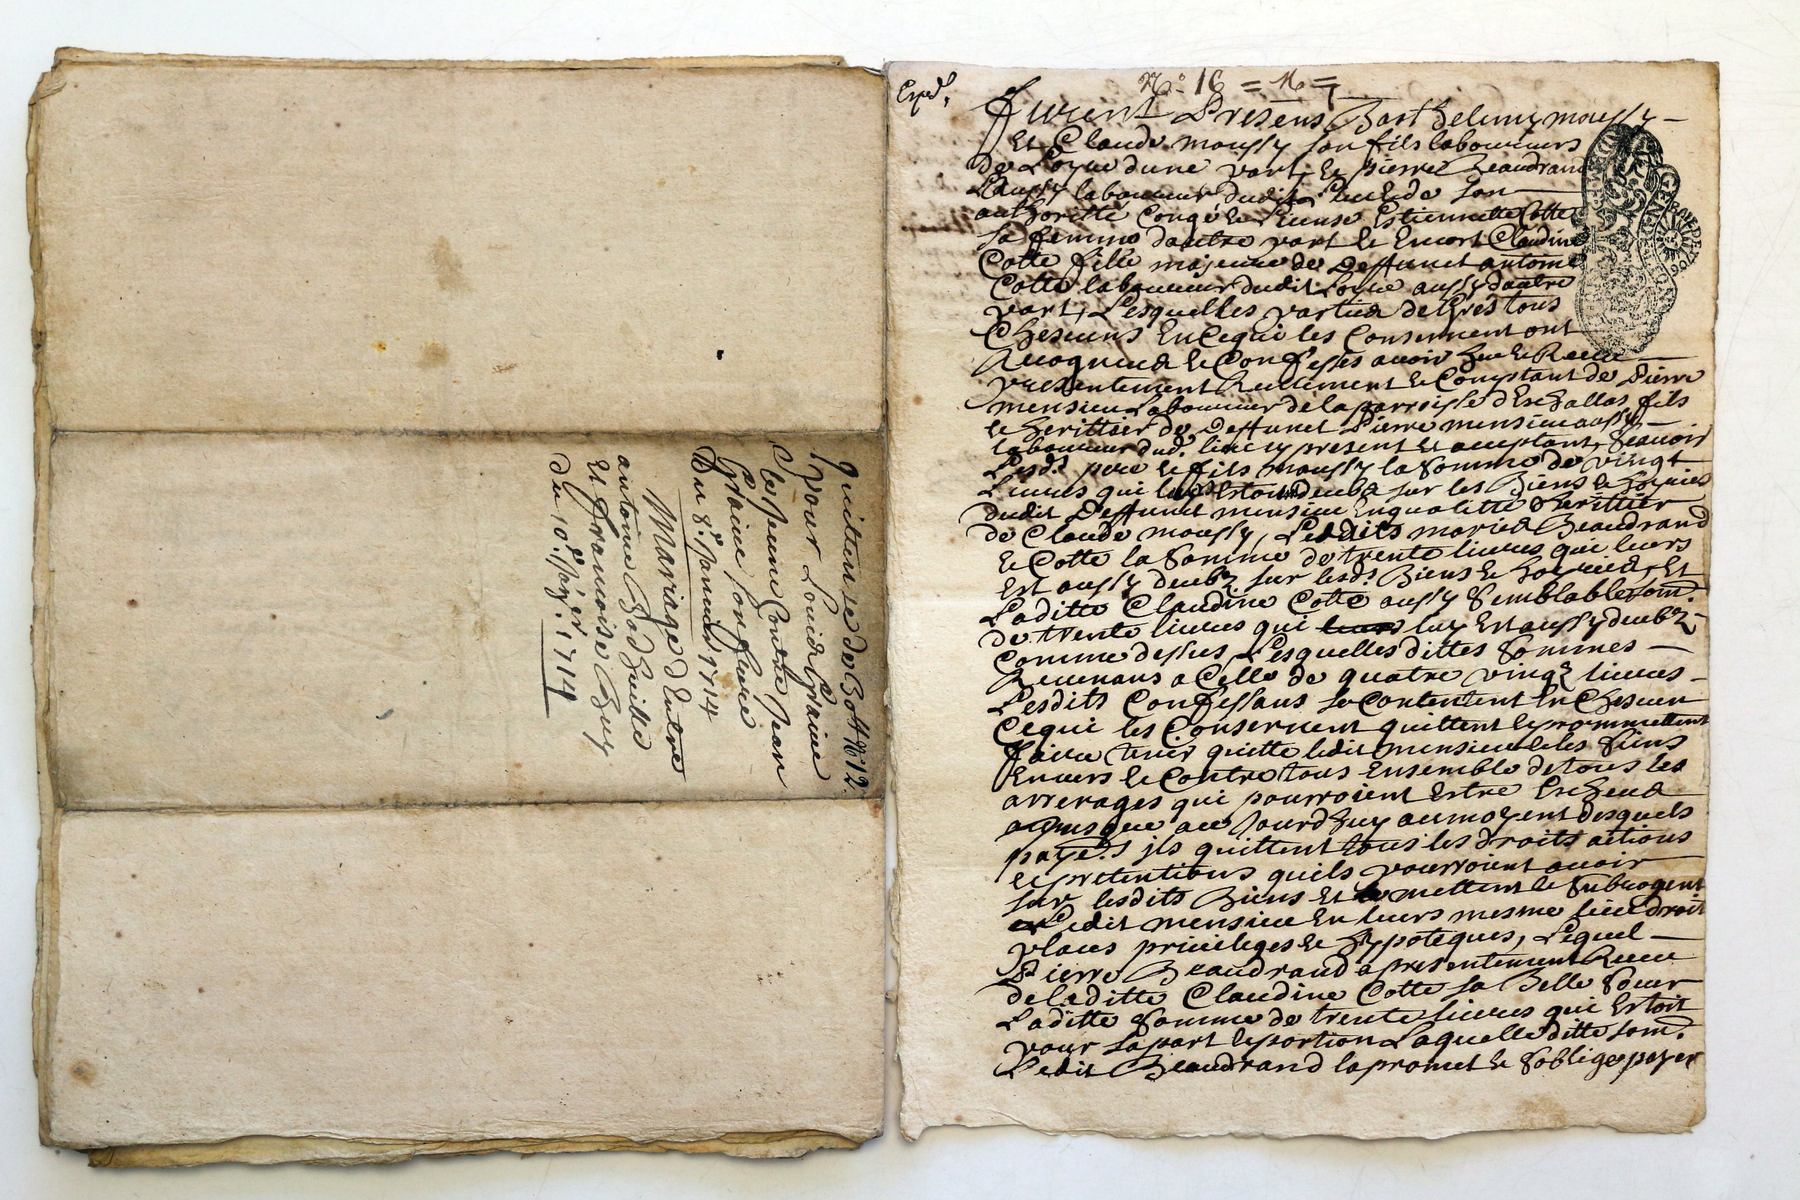 quittance de 30 tt N° 12
pour Louis Graine
le jeune Contre Jean
Graine son frere
Du 8e Janvier 1714
Mariage d'Entre
antoine
Et francoise
du 10e 1714
Exped.
N° 16
furent Presens Barthelemy moussy
Et Claude moussy son fils laboureurs
de Loyre dune part, Et Pierre Beaudrand
aussy laboureur dudit lieu Et de son
authorité Congé License Estiennette Cotte
sa femme dautre part Et Encort Claudine
Cotte fille majeure de Deffunct antoine
Cotte laboureur dudit Loyre aussy dautre
part, Lesquelles parties de Gres tous
Chescuns En Ce qui les Consernent ont
Recognues Et Confesses avoir heu Et Receu
presentement Reellement Et Comptant de Pierre
mensieu Laboureur de la parroisse d'Eschallas fils
Et heritier de Deffunct Pierre mensieu aussy
laboureur dud. lieu cy present Et acceptant, Scavoir
Lesd. pere Et fils moussy la Somme de vingt
Livres qui leurs Estoit deube sur les Biens Et hoyries
dudit Deffunct mensieu En qualitte d'heritier
de Claude moussy, Lesdits maries Beaudrand
Et Cotte la Somme de trente livres qui leurs
Est aussy deube sur lesd. Biens Et hoyries, Et
Laditte Claudine Cotte aussy Semblable som.
de trente livres qui luy Est aussy deube
Comme dessus Lesquelles dittes Sommes
Revenans a Celle de quatre vingt livres
Lesdits Confessans se Contentent En Chescun
Ce qui les Consernent quittent Et prommettent
faire tenir quitte ledit mensieu Et les Siens
Envers Et Contre tous Ensemble de tous les
arrerages qui pourroient Estre Escheus
jusque au Jourdhuy au moyent desquels
payem.t ils quittent tous les droits actions
Et pretentions quils pourroient avoir
sur lesdits Biens Et mettent Et Subrogent
Ledit mensieu En leurs mesme lieu droit
place privileges Et hypoteques, Lequel
Pierre Beaudrand a presentement Receu
de laditte Claudine Cotte sa Belle Soeur
Laditte Somme de trente livres qui Estoit
pour sa part Et portion Laquelle ditte som.
Ledit Beaudrand la promet Et Soblige payer